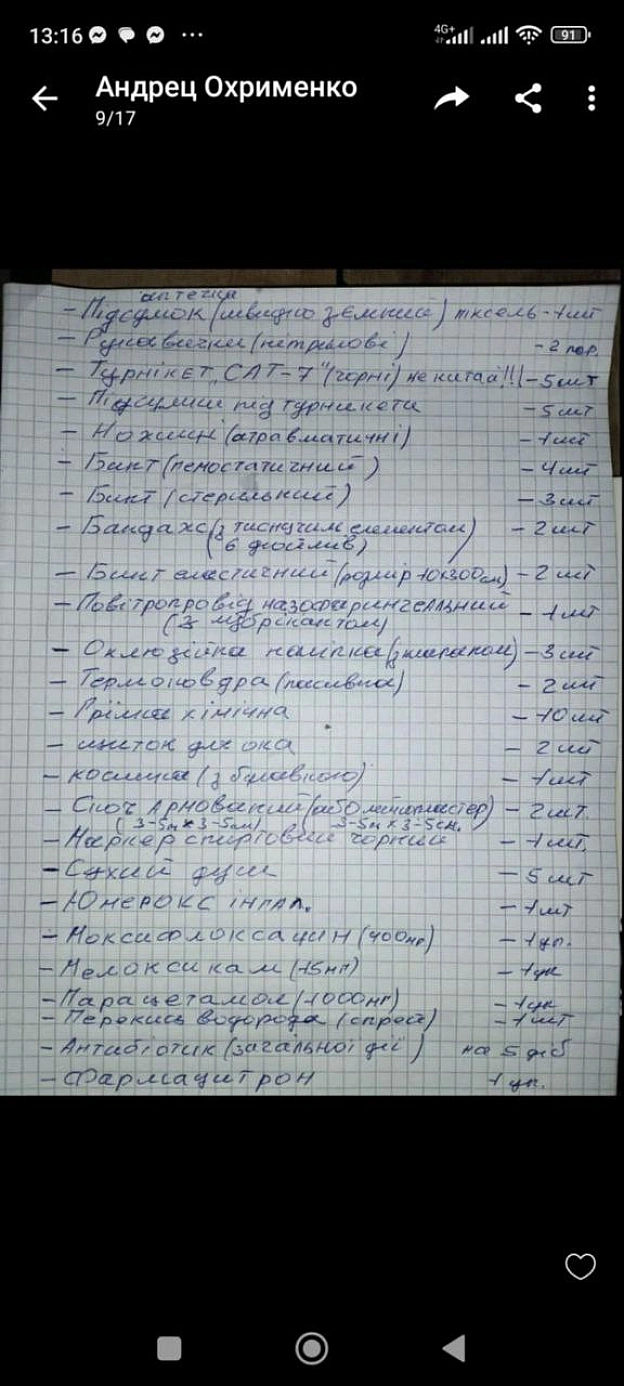 13:16
4G+
91
Андрец Охрименко
9/17
аптечка
- Підсумок (швидко зємний) піксель - 1 шт
- Рукавички (нітрилові) - 2 пар.
- Турнікет „САТ-7" (чорні) не китай!!! - 5 шт
- Підсумки під турникети - 5 шт
- Ножиці (атравматичні) - 1 шт
- Бинт (гемостатичний) - 4 шт
- Бинт (стерильний) - 3 шт
- Бандаж (з тиснучим елементом) - 2 шт
(6 дюймів)
- Бинт еластичний (розмір 10х300см) - 2 шт
- Повітропровід назофарингеальний - 1 шт
(з лубрікантом)
- Оклюзійна наліпка (з клапаном) - 3 шт
- Термоковдра (пасивна) - 2 шт
- Грілка хімічна - 10 шт
- щиток для ока - 2 шт
- косинка (з булавкою) - 1 шт
- Скоч Армований (або лейкопластер) - 2 шт.
(3-5м х 3-5см) 3-5м х 3-5см.
- Маркер спиртовий чорний - 1 шт.
- Сухий душ - 5 шт
- Юнерокс інгал. - 1 шт
- Моксифлоксацин (400мг) - 1 уп.
- Мелоксикам (15мг) - 1 уп
- Парацетамол (1000мг) - 1 уп
- Перокись водорода (спрей) - 1 шт
- Антибіотик (загальної дії) на 5 діб
- Фармацитрон 1 уп.